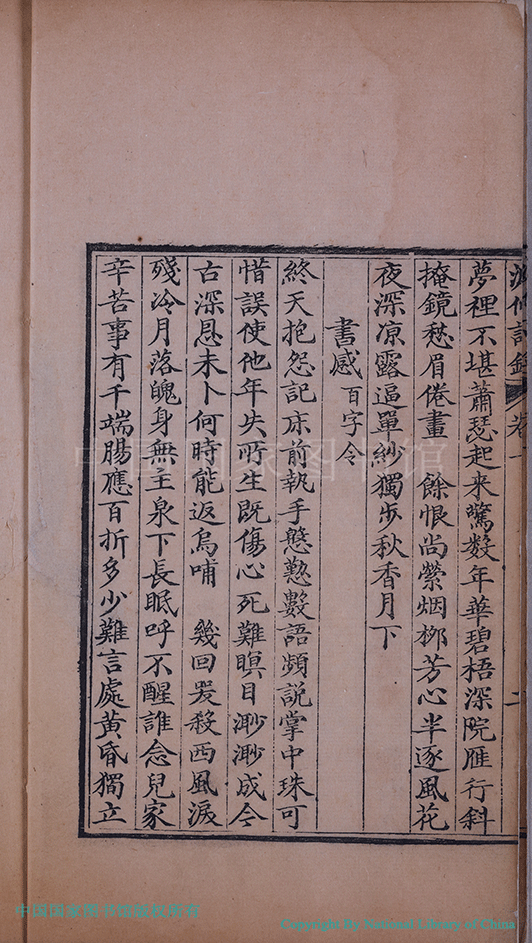 卷一
二
夢裡不堪蕭瑟起来驚数年華碧梧深院雁行斜
掩鏡愁眉倦畫　餘恨尚縈烟栁芳心半逐風花
夜深凉露逼單紗獨步秋香月下
書感 百字令
終天抱怨記床前執手慇懃數語頻説掌中珠可
惜誤使他年失所生既傷心死難瞑目渺渺成今
古深恩未卜何時能返烏哺　幾回哭殺西風淚
殘冷月落魄身無主泉下長眠呼不醒誰念兒家
辛苦事有千端腸應百折多少難言處黃昏獨立
中国国家图书馆
中国国家图书馆版权所有
Copyright By National Library of China